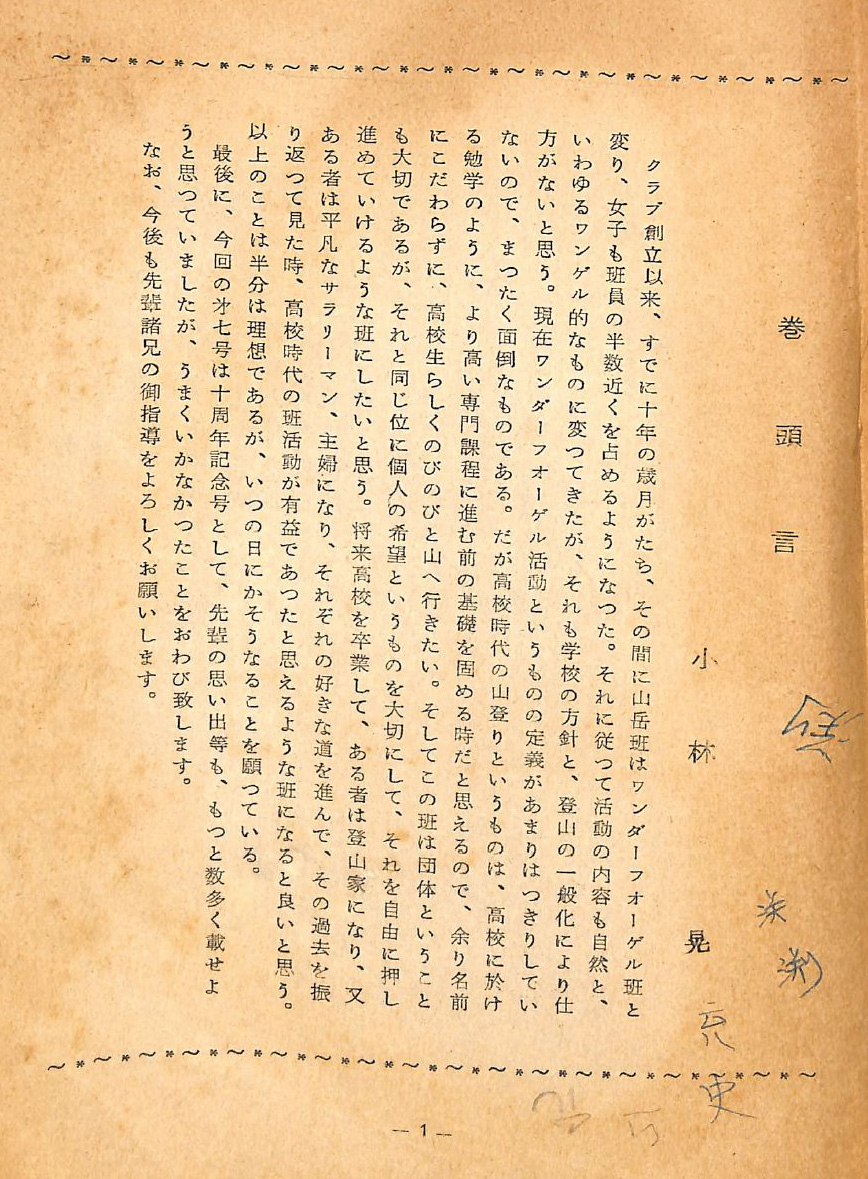 巻頭言
小林晃
クラブ創立以来、すでに十年の歳月がたち、その間に山岳班はワンダーフオーゲル班と
変り、女子も班員の半数近くを占めるようになつた。それに従つて活動の内容も自然と、
いわゆるワンゲル的なものに変つてきたが、それも学校の方針と、登山の一般化により仕
方がないと思う。現在ワンダーフオーゲル活動というものの定義があまりはつきりしてい
ないので、まつたく面倒なものである。だが高校時代の山登りというものは、高校に於け
る勉学のように、より高い専門課程に進む前の基礎を固める時だと思えるので、余り名前
にこだわらずに、高校生らしくのびのびと山へ行きたい。そしてこの班は団体ということ
も大切であるが、それと同じ位に個人の希望というものを大切にして、それを自由に押し
進めていけるような班にしたいと思う。将来高校を卒業して、ある者は登山家になり、又
ある者は平凡なサラリーマン、主婦になり、それぞれの好きな道を進んで、その過去を振
り返つて見た時、高校時代の班活動が有益であつたと思えるような班になると良いと思う。
以上のことは半分は理想であるが、いつの日にかそうなることを願つている。
最後に、今回の㐧七号は十周年記念号として、先輩の思い出等も、もつと数多く載せよ
うと思つていましたが、うまくいかなかつたことをおわび致します。
なお、今後も先輩諸兄の御指導をよろしくお願いします。
— 1 —